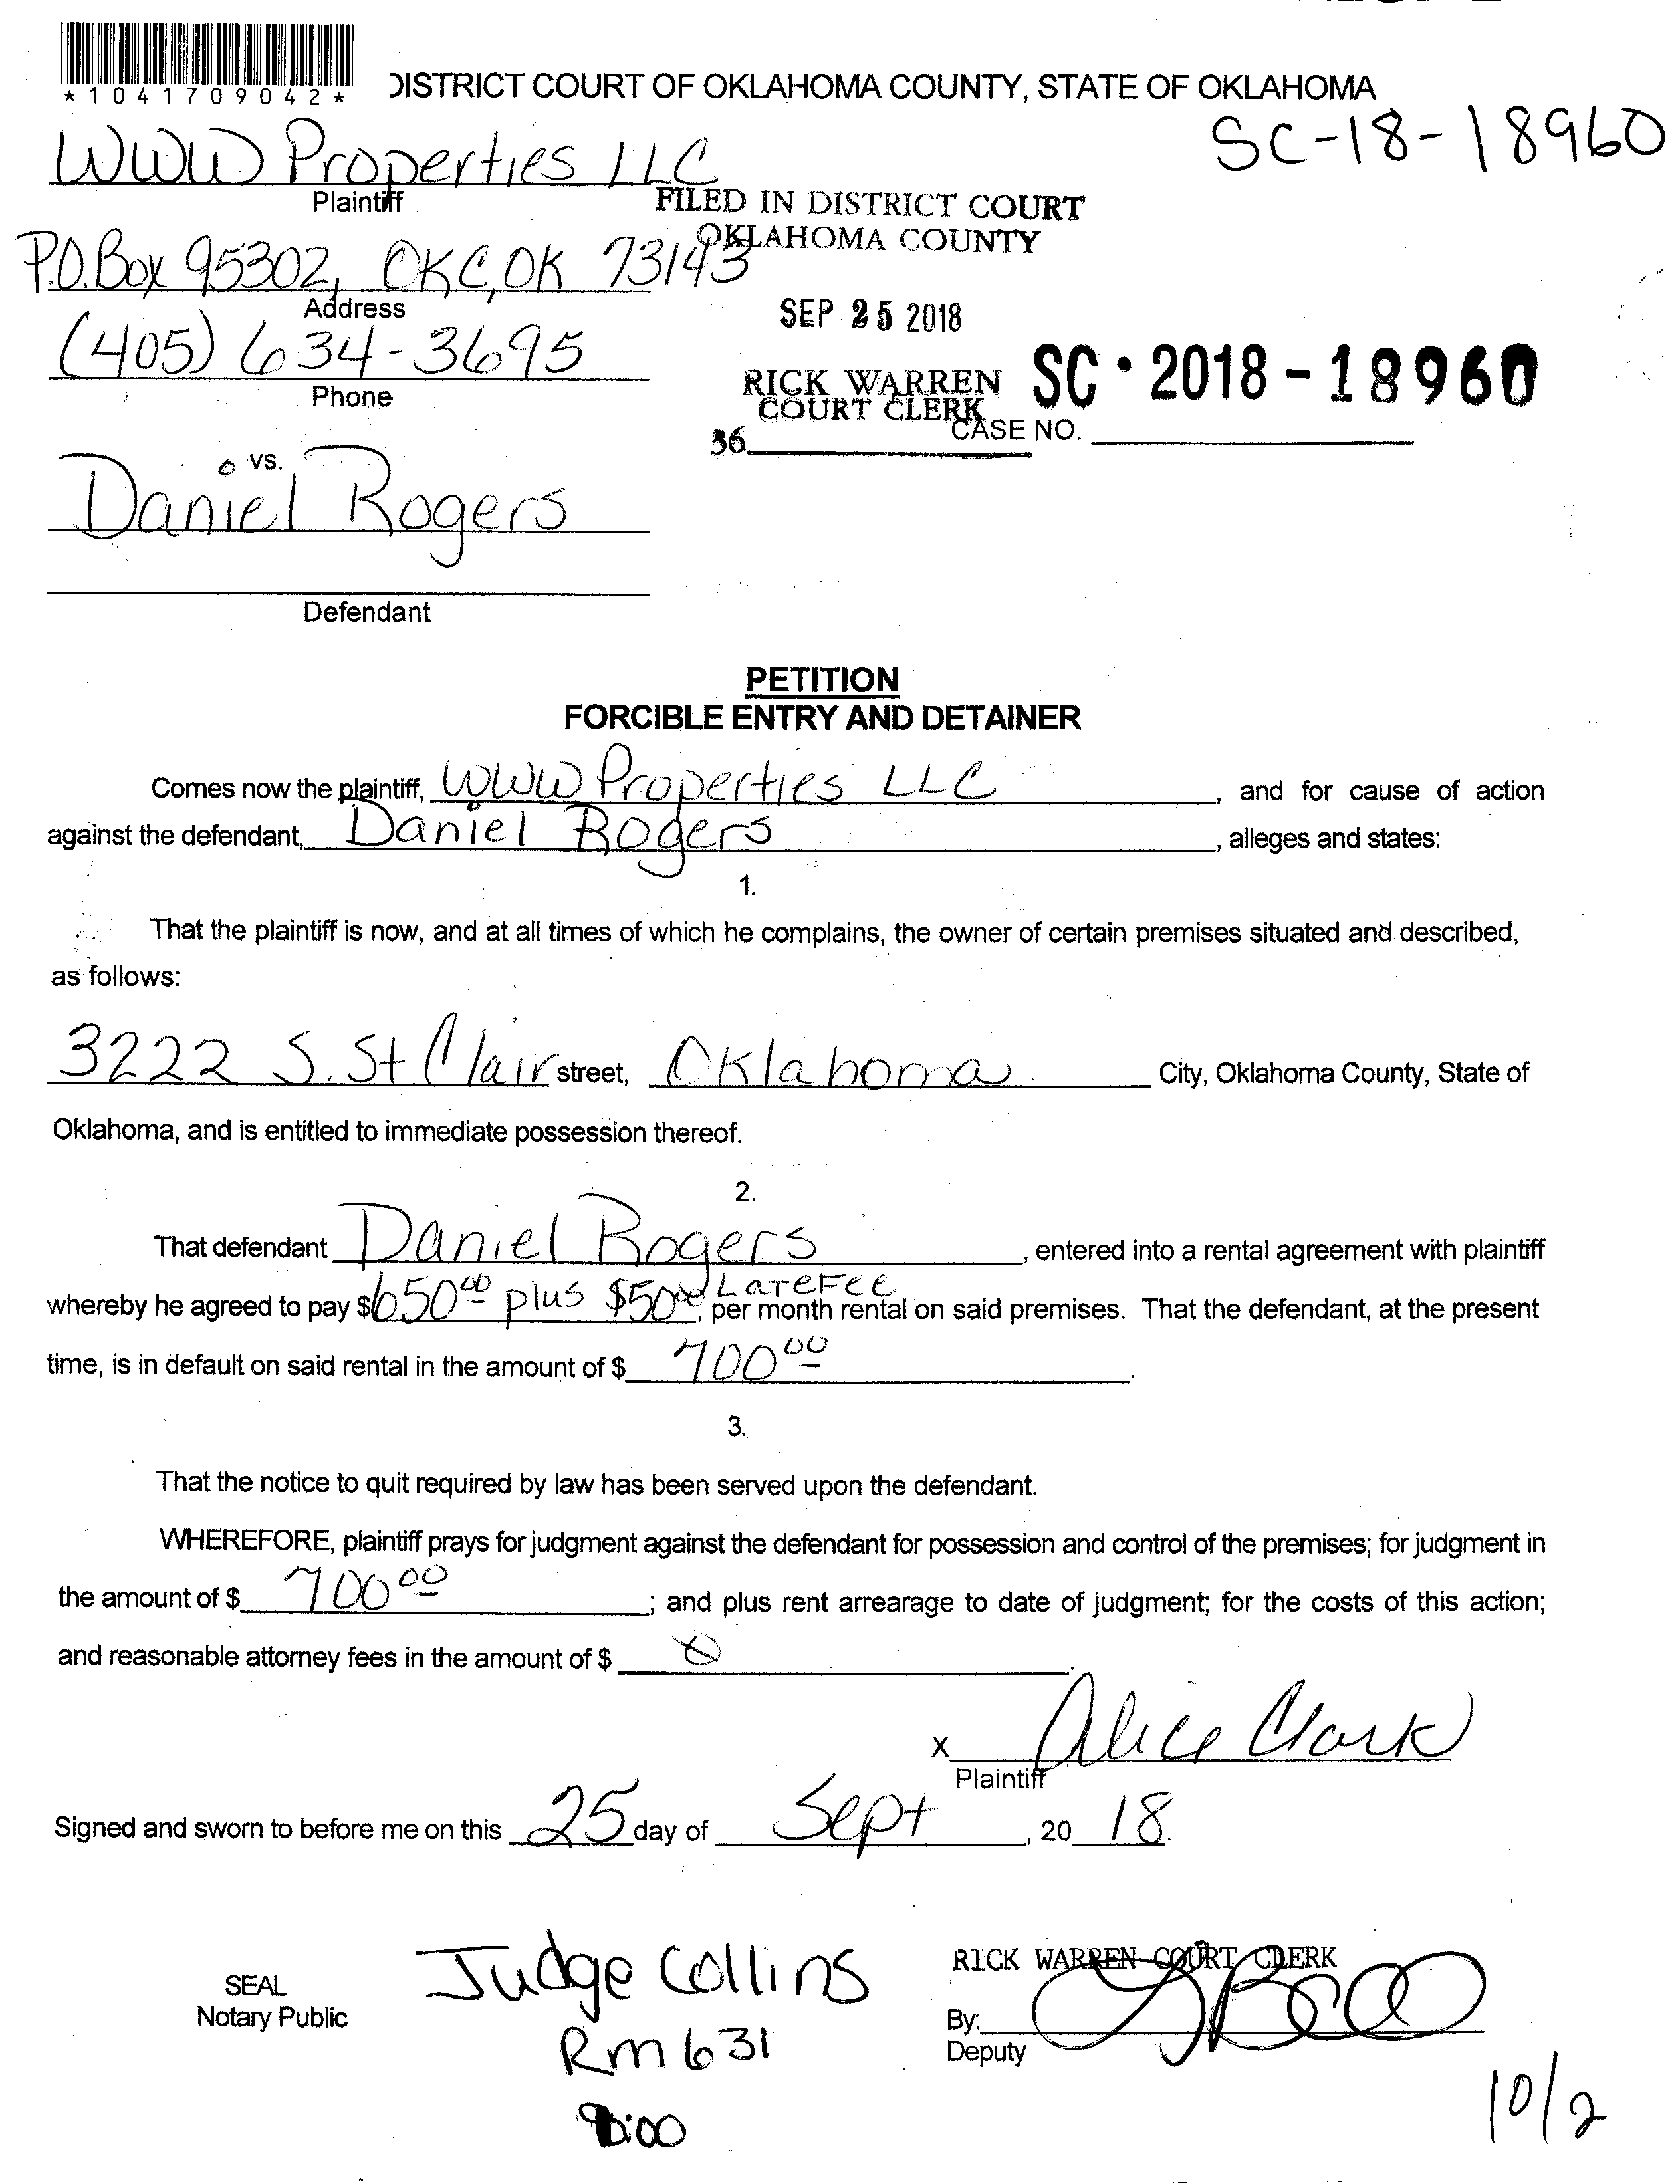 *1041709042*
DISTRICT COURT OF OKLAHOMA COUNTY, STATE OF OKLAHOMA
SC-18-18960
WWW Properties LLC
Plaintiff
FILED IN DISTRICT COURT
OKLAHOMA COUNTY
P.O. Box 95302, OKC, OK 73143
Address
SEP 25 2018
(405) 634-3695
Phone
RICK WARREN
COURT CLERK
SC • 2018 - 18960
36
CASE NO.
vs.
Daniel Rogers
Defendant
PETITION
FORCIBLE ENTRY AND DETAINER
Comes now the plaintiff, WWW Properties LLC, and for cause of action
against the defendant, Daniel Rogers, alleges and states:
1.
That the plaintiff is now, and at all times of which he complains, the owner of certain premises situated and described,
as follows:
3222 S. St Clair street, Oklahoma City, Oklahoma County, State of
Oklahoma, and is entitled to immediate possession thereof.
2.
That defendant Daniel Rogers, entered into a rental agreement with plaintiff
whereby he agreed to pay $650.00 plus $50.00 Late Fee, per month rental on said premises. That the defendant, at the present
time, is in default on said rental in the amount of $ 700.00.
3.
That the notice to quit required by law has been served upon the defendant.
WHEREFORE, plaintiff prays for judgment against the defendant for possession and control of the premises; for judgment in
the amount of $ 700.00; and plus rent arrearage to date of judgment; for the costs of this action;
and reasonable attorney fees in the amount of $ 0.
X Alice Clark
Plaintiff
Signed and sworn to before me on this 25 day of Sept, 20 18.
Judge Collins
RICK WARREN COURT CLERK
SEAL
Notary Public
By:
Rm 631
Deputy
10/2